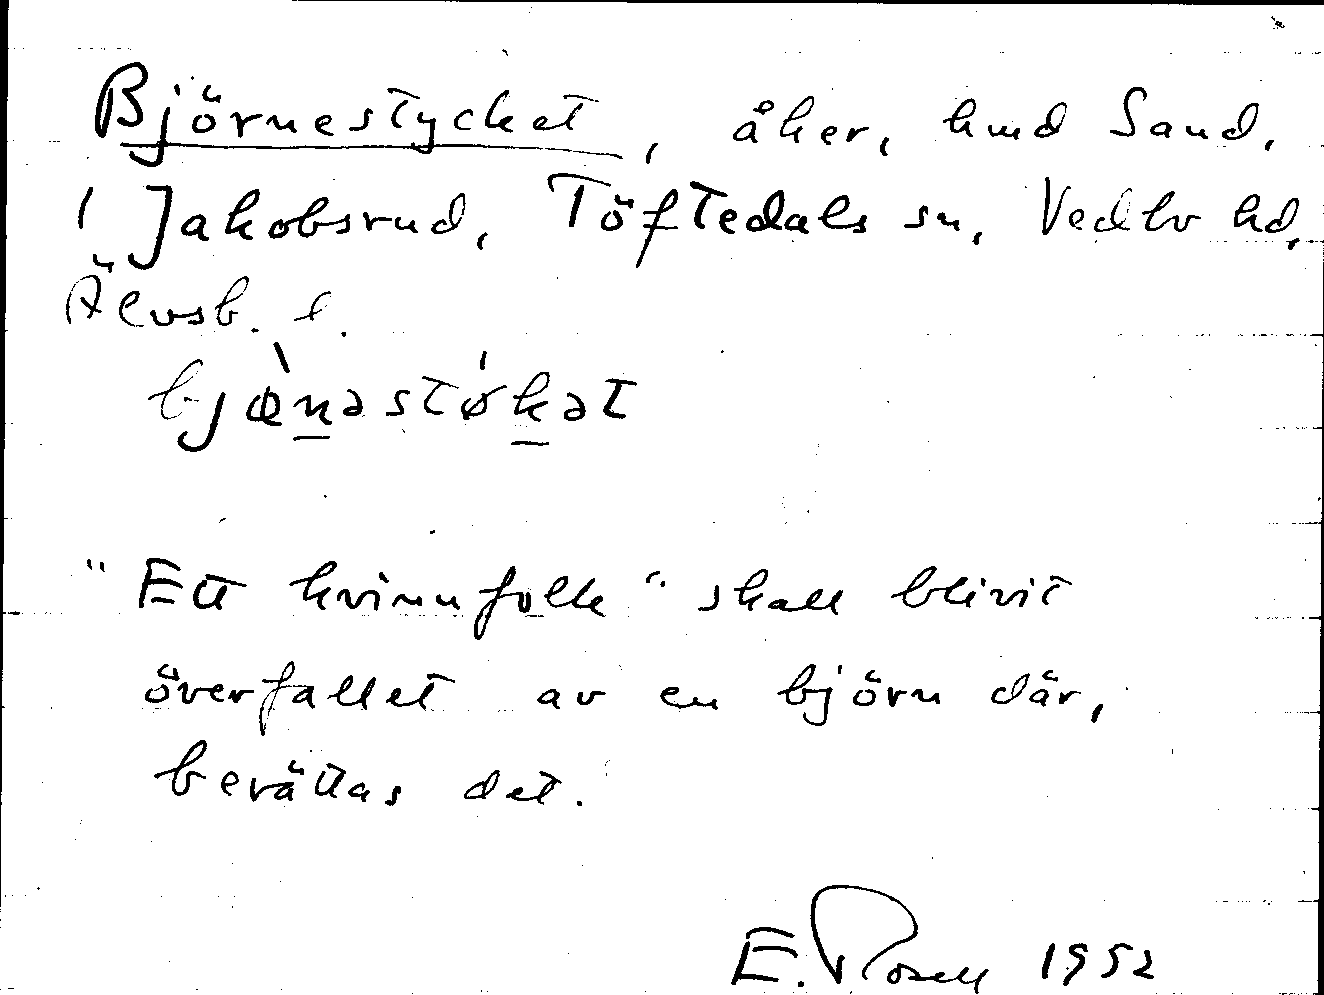 Björnestycket, åker, hmd Sand,
1 Jakobsrud, Töftedals sn, Vedbo hd,
Älvsb. l.
bjœ̀n̲əstǿk̲ət
"Ett kvinnfolk" skall blivit
överfallet av en björn där,
berättas det.
E. Rosell 1952